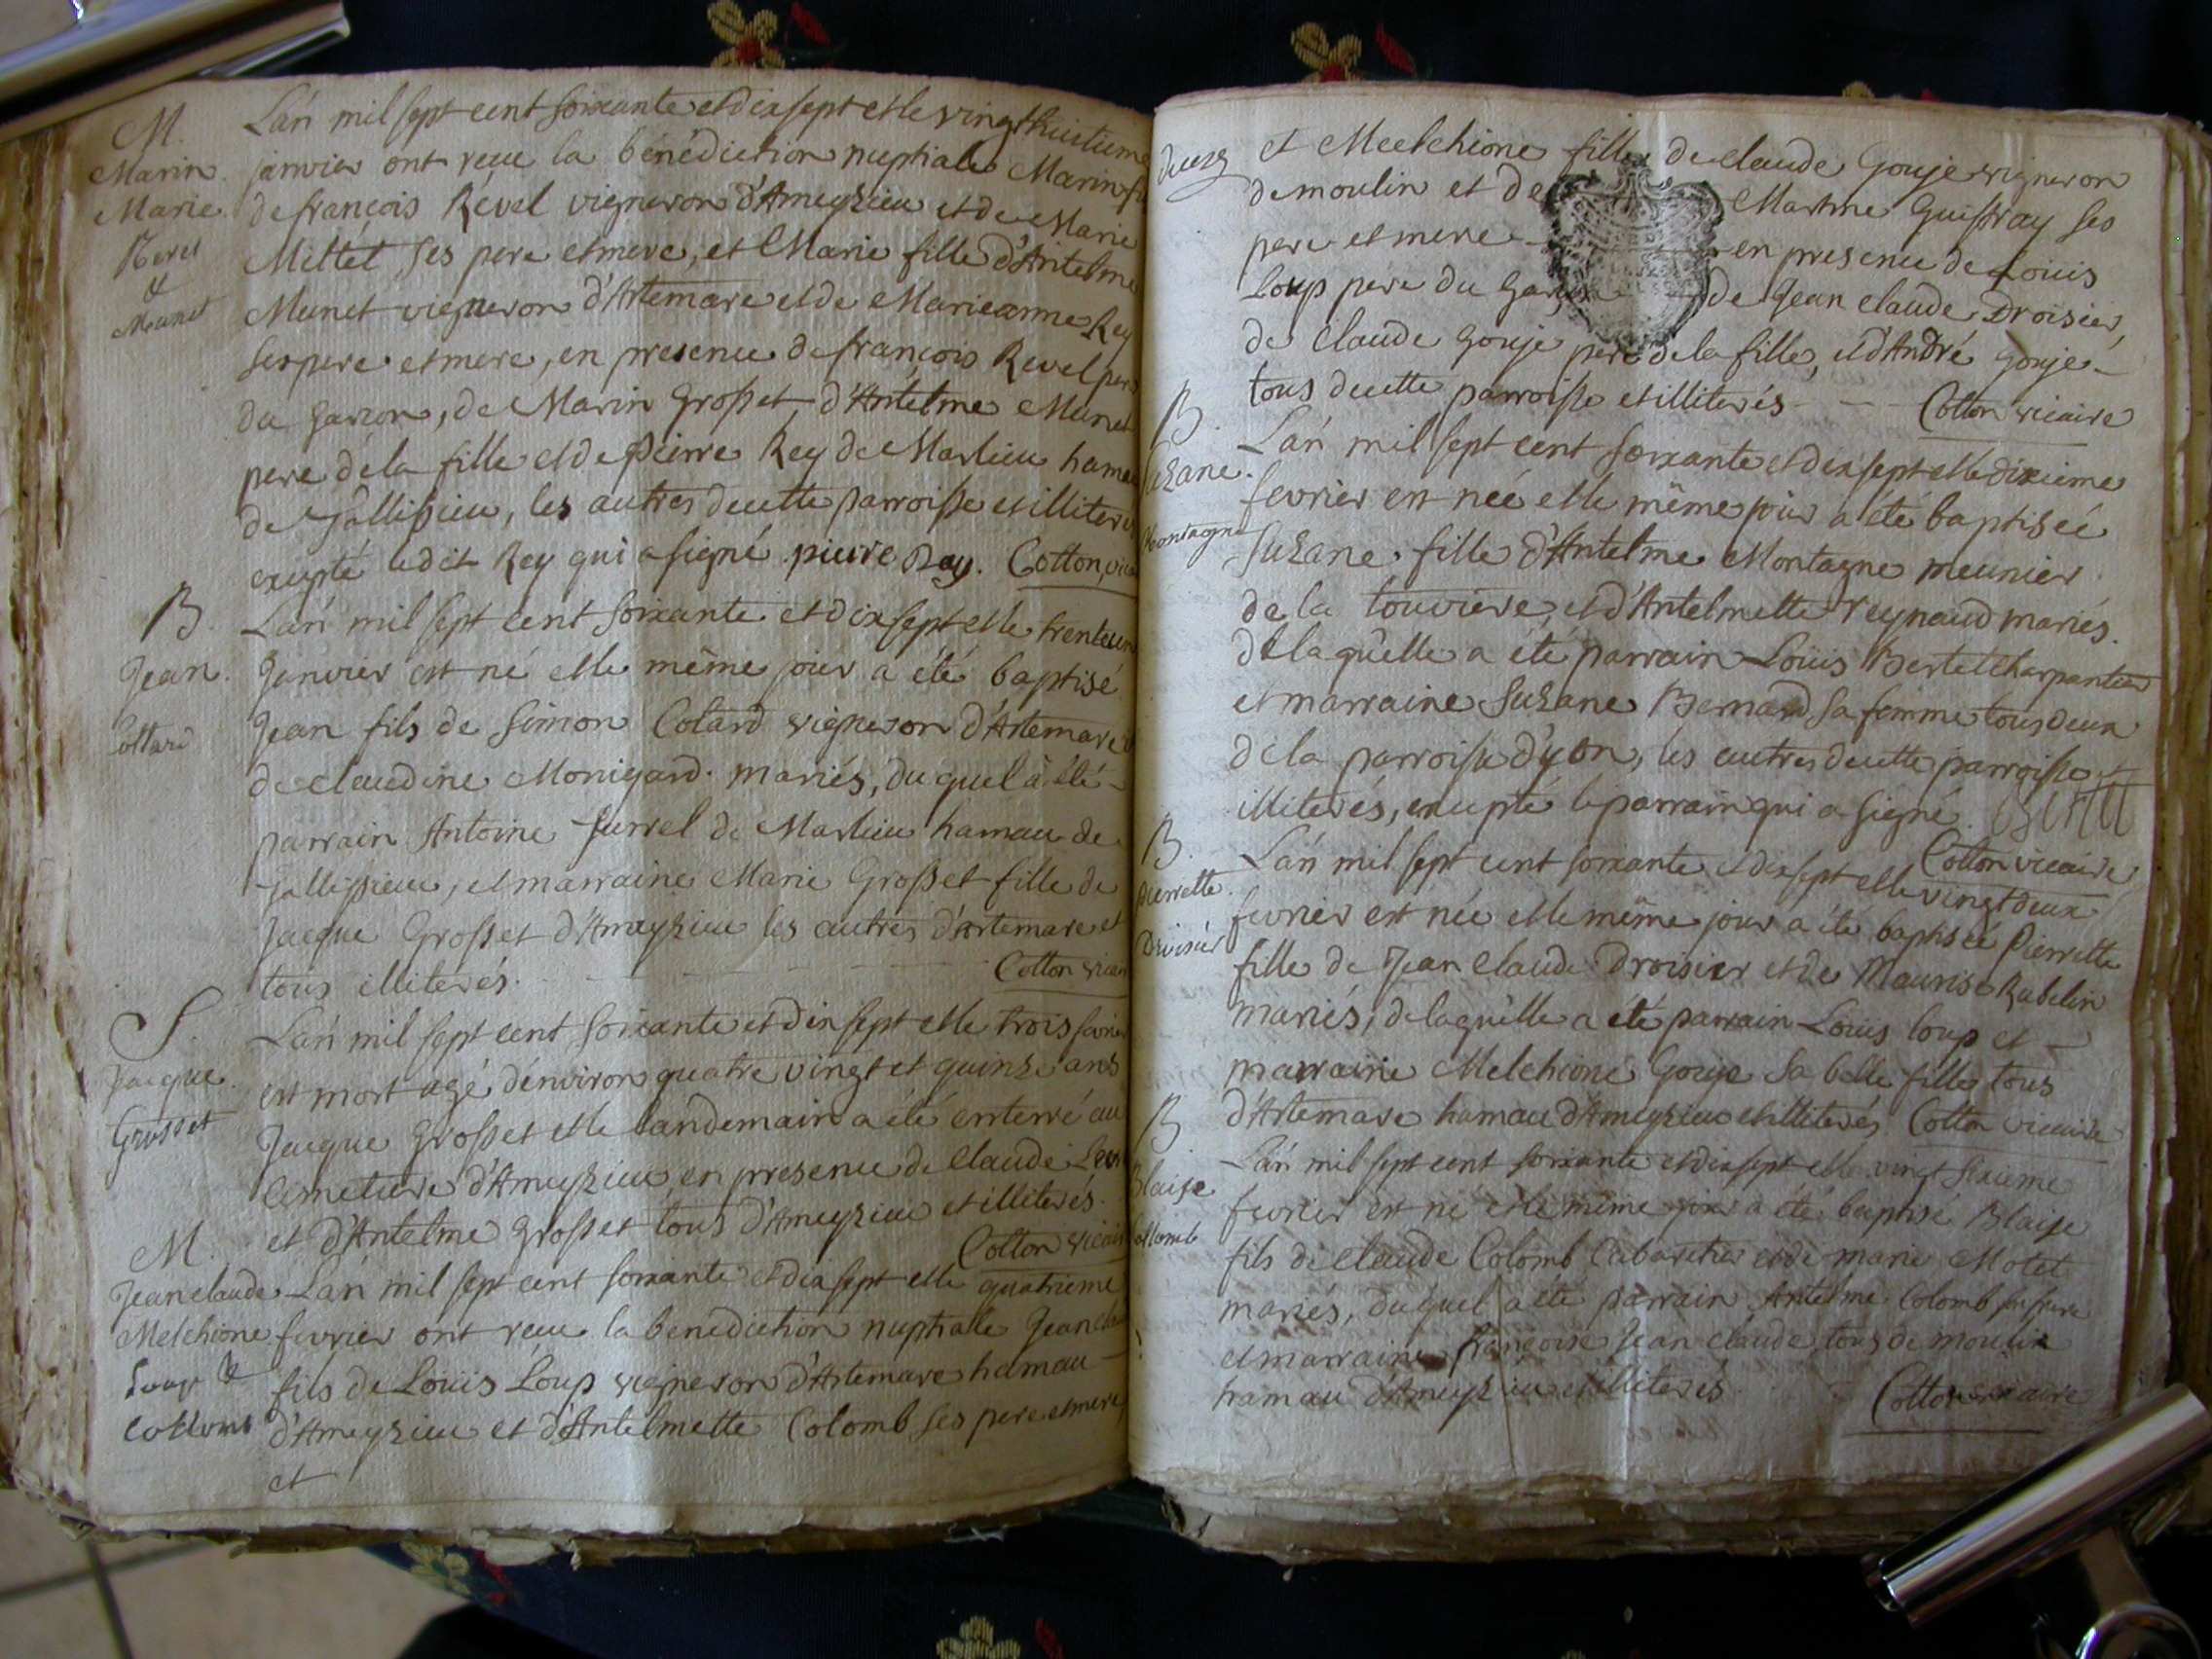 M.
Marin.
Marie.
Revel
&
Meunet
L'an mil sept cent soixante et dix sept et le vingt huitieme
janvier ont reçu la bénédiction nuptiale Marin
de françois Révél vigneron d'Ameyzieu et de Marie
Mittét ses pere et mere, et Marie fille d'Antelme
Munet vigneron d'Artemare et de Marieanne Rey
ses pere et mere, en presence de françois Revel pere
du garcon, de Marin Grosset, d'Antelme Munet
pere de la fille et de pierre Rey de Marlieu hameau
de Tallissieu, les autres de cette parroisse et illiterés
excepté ledit Rey qui a signé. pierre Rey. Cotton, vicaire
B.
Jean.
Collard
L'an mil sept cent soixante et dix sept et le trente un
Janvier est né et le même jour a été baptisé
Jean fils de Simon Colard vigneron d'Artemare
de claudine Monigard. mariés, du quel a été
parrain Antoine Surrel de Marlieu hamau de
Tallissieu, et marraine Marie Grosset fille de
Jacque Grosset d'Ameyzieu les autres d'Artemare et
tous illiterés. Cotton vicaire
S.
Jacque.
Grosset
L'an mil sept cent soixante et dix sept et le trois fevrier
est mort agé d'environ quatre vingt et quinze ans
Jacque Grosset et le landemain a été enterré au
cimetiere d'Ameyzieu en presence de claude
et d'Antelme Grosset tous d'Ameyzieu et illiterés.
Cotton vicaire
M.
Jeanclaude
Melchione
Loup &
Collomb
L'an mil sept cent soixante et dix sept et le quatrieme
fevrier ont reçu la benediction nuptialle Jean
fils de Loüis Loup vigneron d'Artemare hamau
d'Ameyzieu et d'Antelmette Colomb ses pere et mere
et
et Melchione fille de claude Gouje vigneron
de moulin et de Martine Guiffray ses
pere et mere en presence de Loüis
Loup père du garçon de Jean claude Droisier,
de claude Gouje pere de la fille, et d'André Goujé
tous de cette parroisse et illiterés Cotton vicaire
B.
Suzane.
Montagne
L'an mil sept cent soixante et dix sept et le dixieme
fevrier est née et le même jour a été baptiseé
Suzane. fille d'Antelme Montagne meunier
de la touviere, et d'Antelmette reynaud mariés.
de laquelle a été parrain Loüis Bertet charpantier
et marraine Suzane Bernard sa femme tous deux
de la parroisse d'yon, les autres de cette parroisse et
illiterés, excepté le parrain qui a signé. Bertet
Cotton vicaire
B.
Pierrette.
Droisier
L'an mil sept cent soixante et dix sept et le vingt deux
fevrier est née et le même jour a été baptiseé Pierrette
fille de Jean claude Droisier et de Maurise Rabelin
mariés, de laquelle a été parrain Loüis loup et
marraine Melchione Gouje sa belle fille tous
d'Artemare hamau d'Ameyzieu et illiterés Cotton vicaire
B
Blaise
Collomb
L'an mil sept cent soixante et dix sept et le vingt sixieme
fevrier est né et le même jour a été baptisé Blaise
fils de claude Colomb Cabaretier et de marie Motet
mariés, duquel a été parrain Antelme Colomb son frere
et marraine françoise Jean claude, tous de moulin
hamau d'Ameyzieu et illiterés. Cotton vicaire